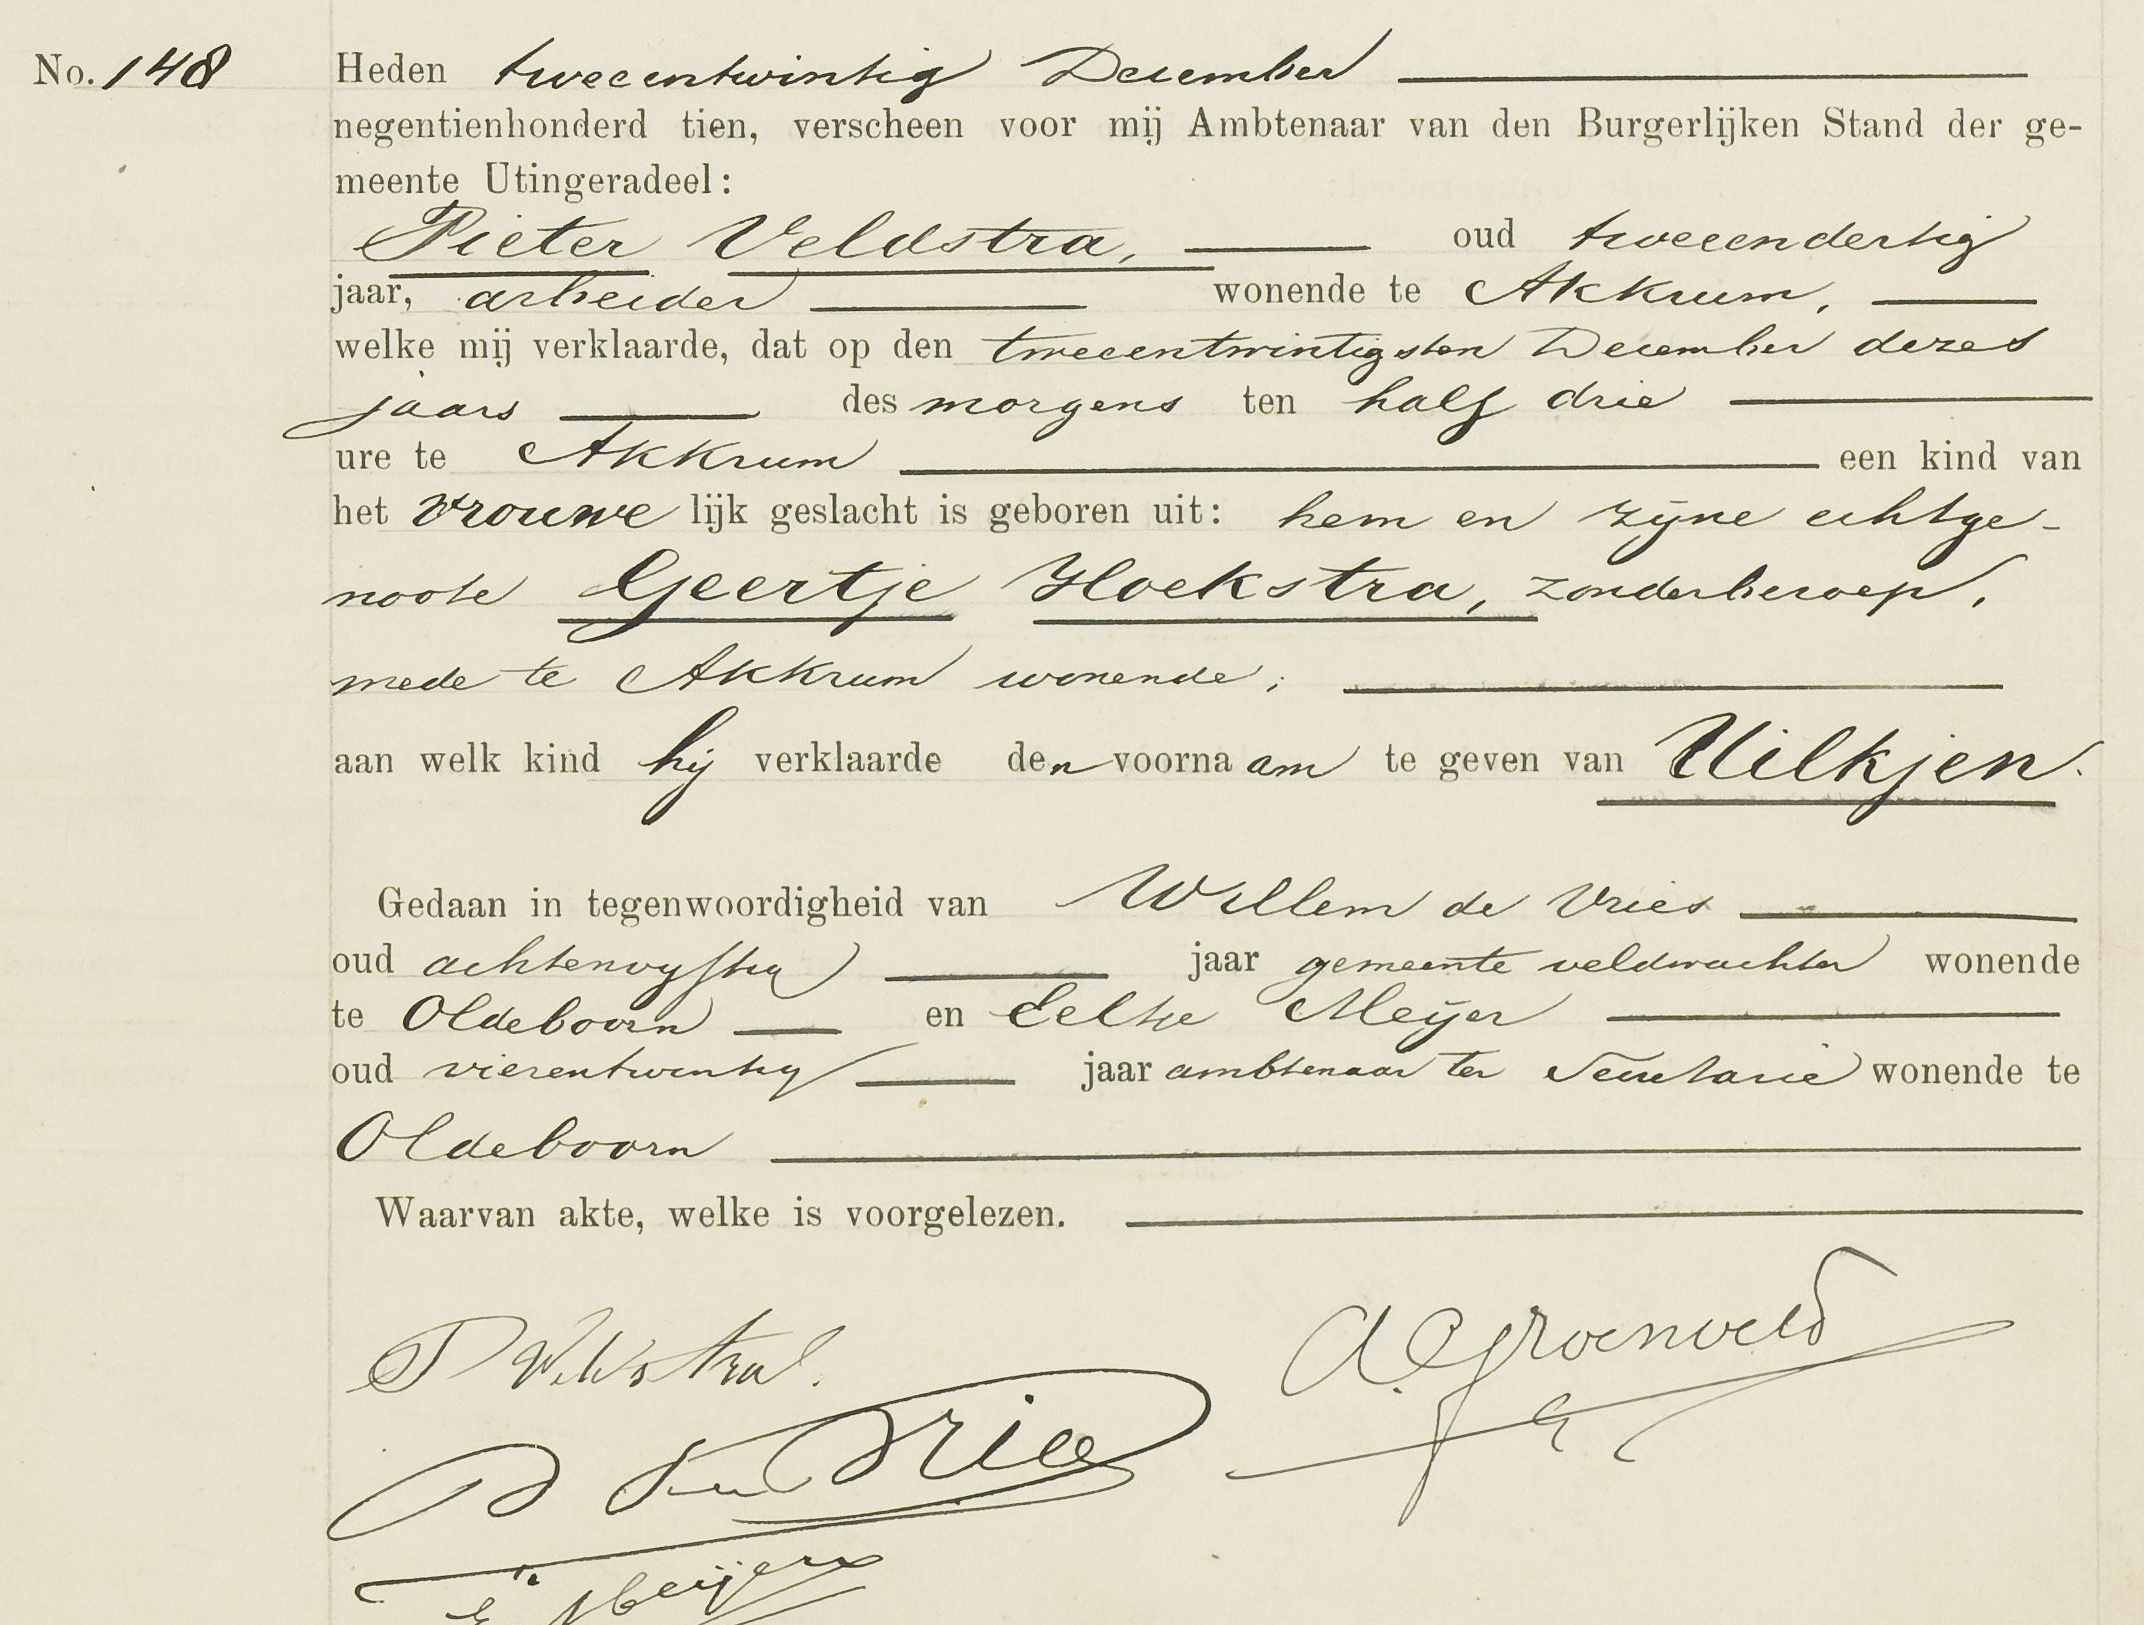 No. 148 Heden tweeentwintig December
negentienhonderd tien, verscheen voor mij Ambtenaar van den Burgerlijken Stand der ge-
meente Utingeradeel:
Pieter Veldstra, oud tweeendertig
jaar, arbeider wonende te Akkrum,
welke mij verklaarde, dat op den tweeentwintigsten December dezes
jaars des morgens ten half drie
ure te Akkrum een kind van
het vrouwe lijk geslacht is geboren uit: hem en zijne echtge-
noote Geertje Hoekstra, zonder beroep,
mede te Akkrum wonende;
aan welk kind hij verklaarde den voornaam te geven van Uilkjen.
Gedaan in tegenwoordigheid van Willem de Vries
oud achtenvijftig jaar gemeente veldwachter wonende
te Oldeboorn en Eeltje Meijer
oud vierentwintig jaar ambtenaar ter Secretarie wonende te
Oldeboorn
Waarvan akte, welke is voorgelezen.
P Veldstra.
A. Groenveld
de Vries
E Meijer